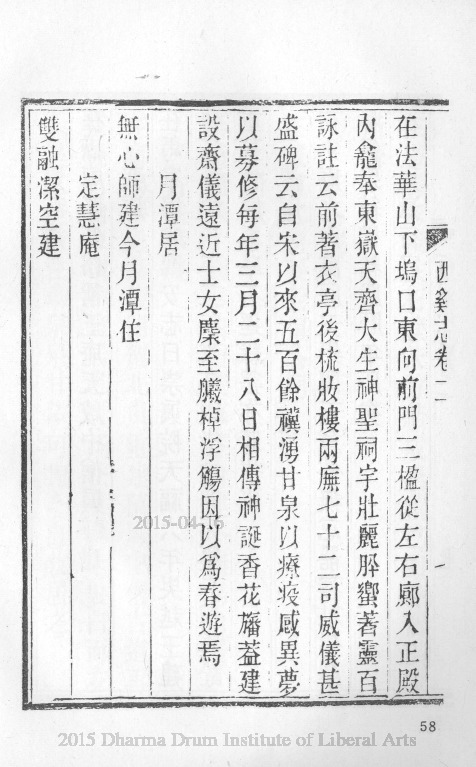 西谿志卷二
在法華山下塢口東向前門三楹從左右廊入正殿
內龕奉東嶽天齊大生神聖祠宇壯麗肸蠁著靈百
詠註云前著衣亭後梳妝樓兩廡七十二司威儀甚
盛碑云自宋以來五百餘禩湧甘泉以療疫感異夢
以募修每年三月二十八日相傳神誕香花旛蓋建
設齋儀遠近士女麇至艤棹浮觴因以爲春遊焉
月潭居
無心師建今月潭住
定慧庵
雙融潔空建
2015-04-16
58
2015 Dharma Drum Institute of Liberal Arts